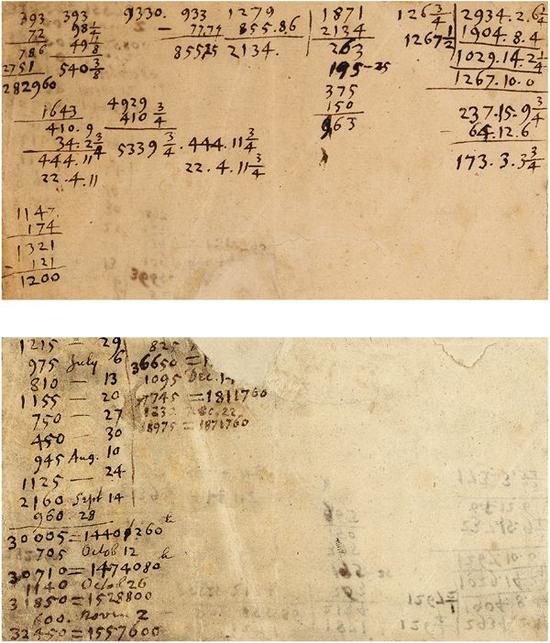 393
72
786
2751
282960
393
98 1/4
49 1/8
540 3/8
9330. 933
— 7774
85525
1279
855.8.6
2134.
1871
2134
263
195-25
375
150
963
126 3/4
1267 1/2
2934.2.6 1/4
1904.8.4
1029.14.2 1/4
1267.10.0
237.15.9 3/4
64.12.6
173.3.3 3/4
1643
410.9
34.2 3/4
444.11 3/4
22.4.11
4929 3/4
410 3/4
5339 3/4
444.11 3/4
22.4.11 3/4
1147
174
1321
121
1200
1215 — 29
975 July 6
810 — 13
1155 — 20
750 — 27
450 — 30
945 Aug. 10
1125 — 24
2160 Sept 14
960 28
30005=1440260
705 Octob 12
30710=1474080
1140 Octob 26
31850=1528800
600. Novem 2
32450=1557600
825
36650 =1
1095 Dec. 1
7745 =1811760
1230 Dec. 22
18975 =1871760